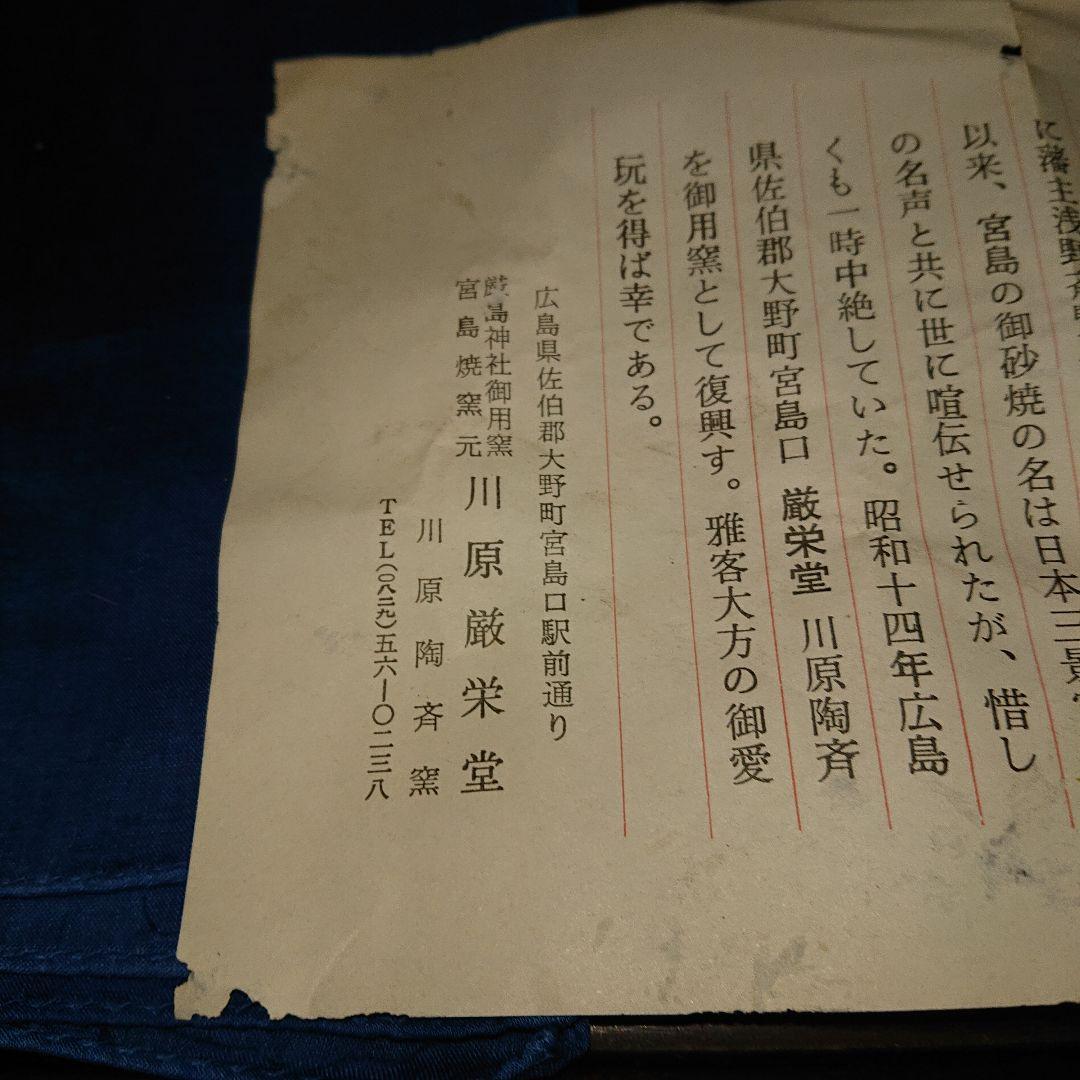 に藩主浅野
以来、宮島の御砂焼の名は日本三景
の名声と共に世に喧伝せられたが、惜し
くも一時中絶していた。昭和十四年広島
県佐伯郡大野町宮島口 厳栄堂 川原陶斉
を御用窯として復興す。雅客大方の御愛
玩を得ば幸である。
広島県佐伯郡大野町宮島口駅前通り
厳島神社御用窯
宮島焼窯元 川原厳栄堂
川原陶斉窯
TEL(〇八二九)五六―〇二三八